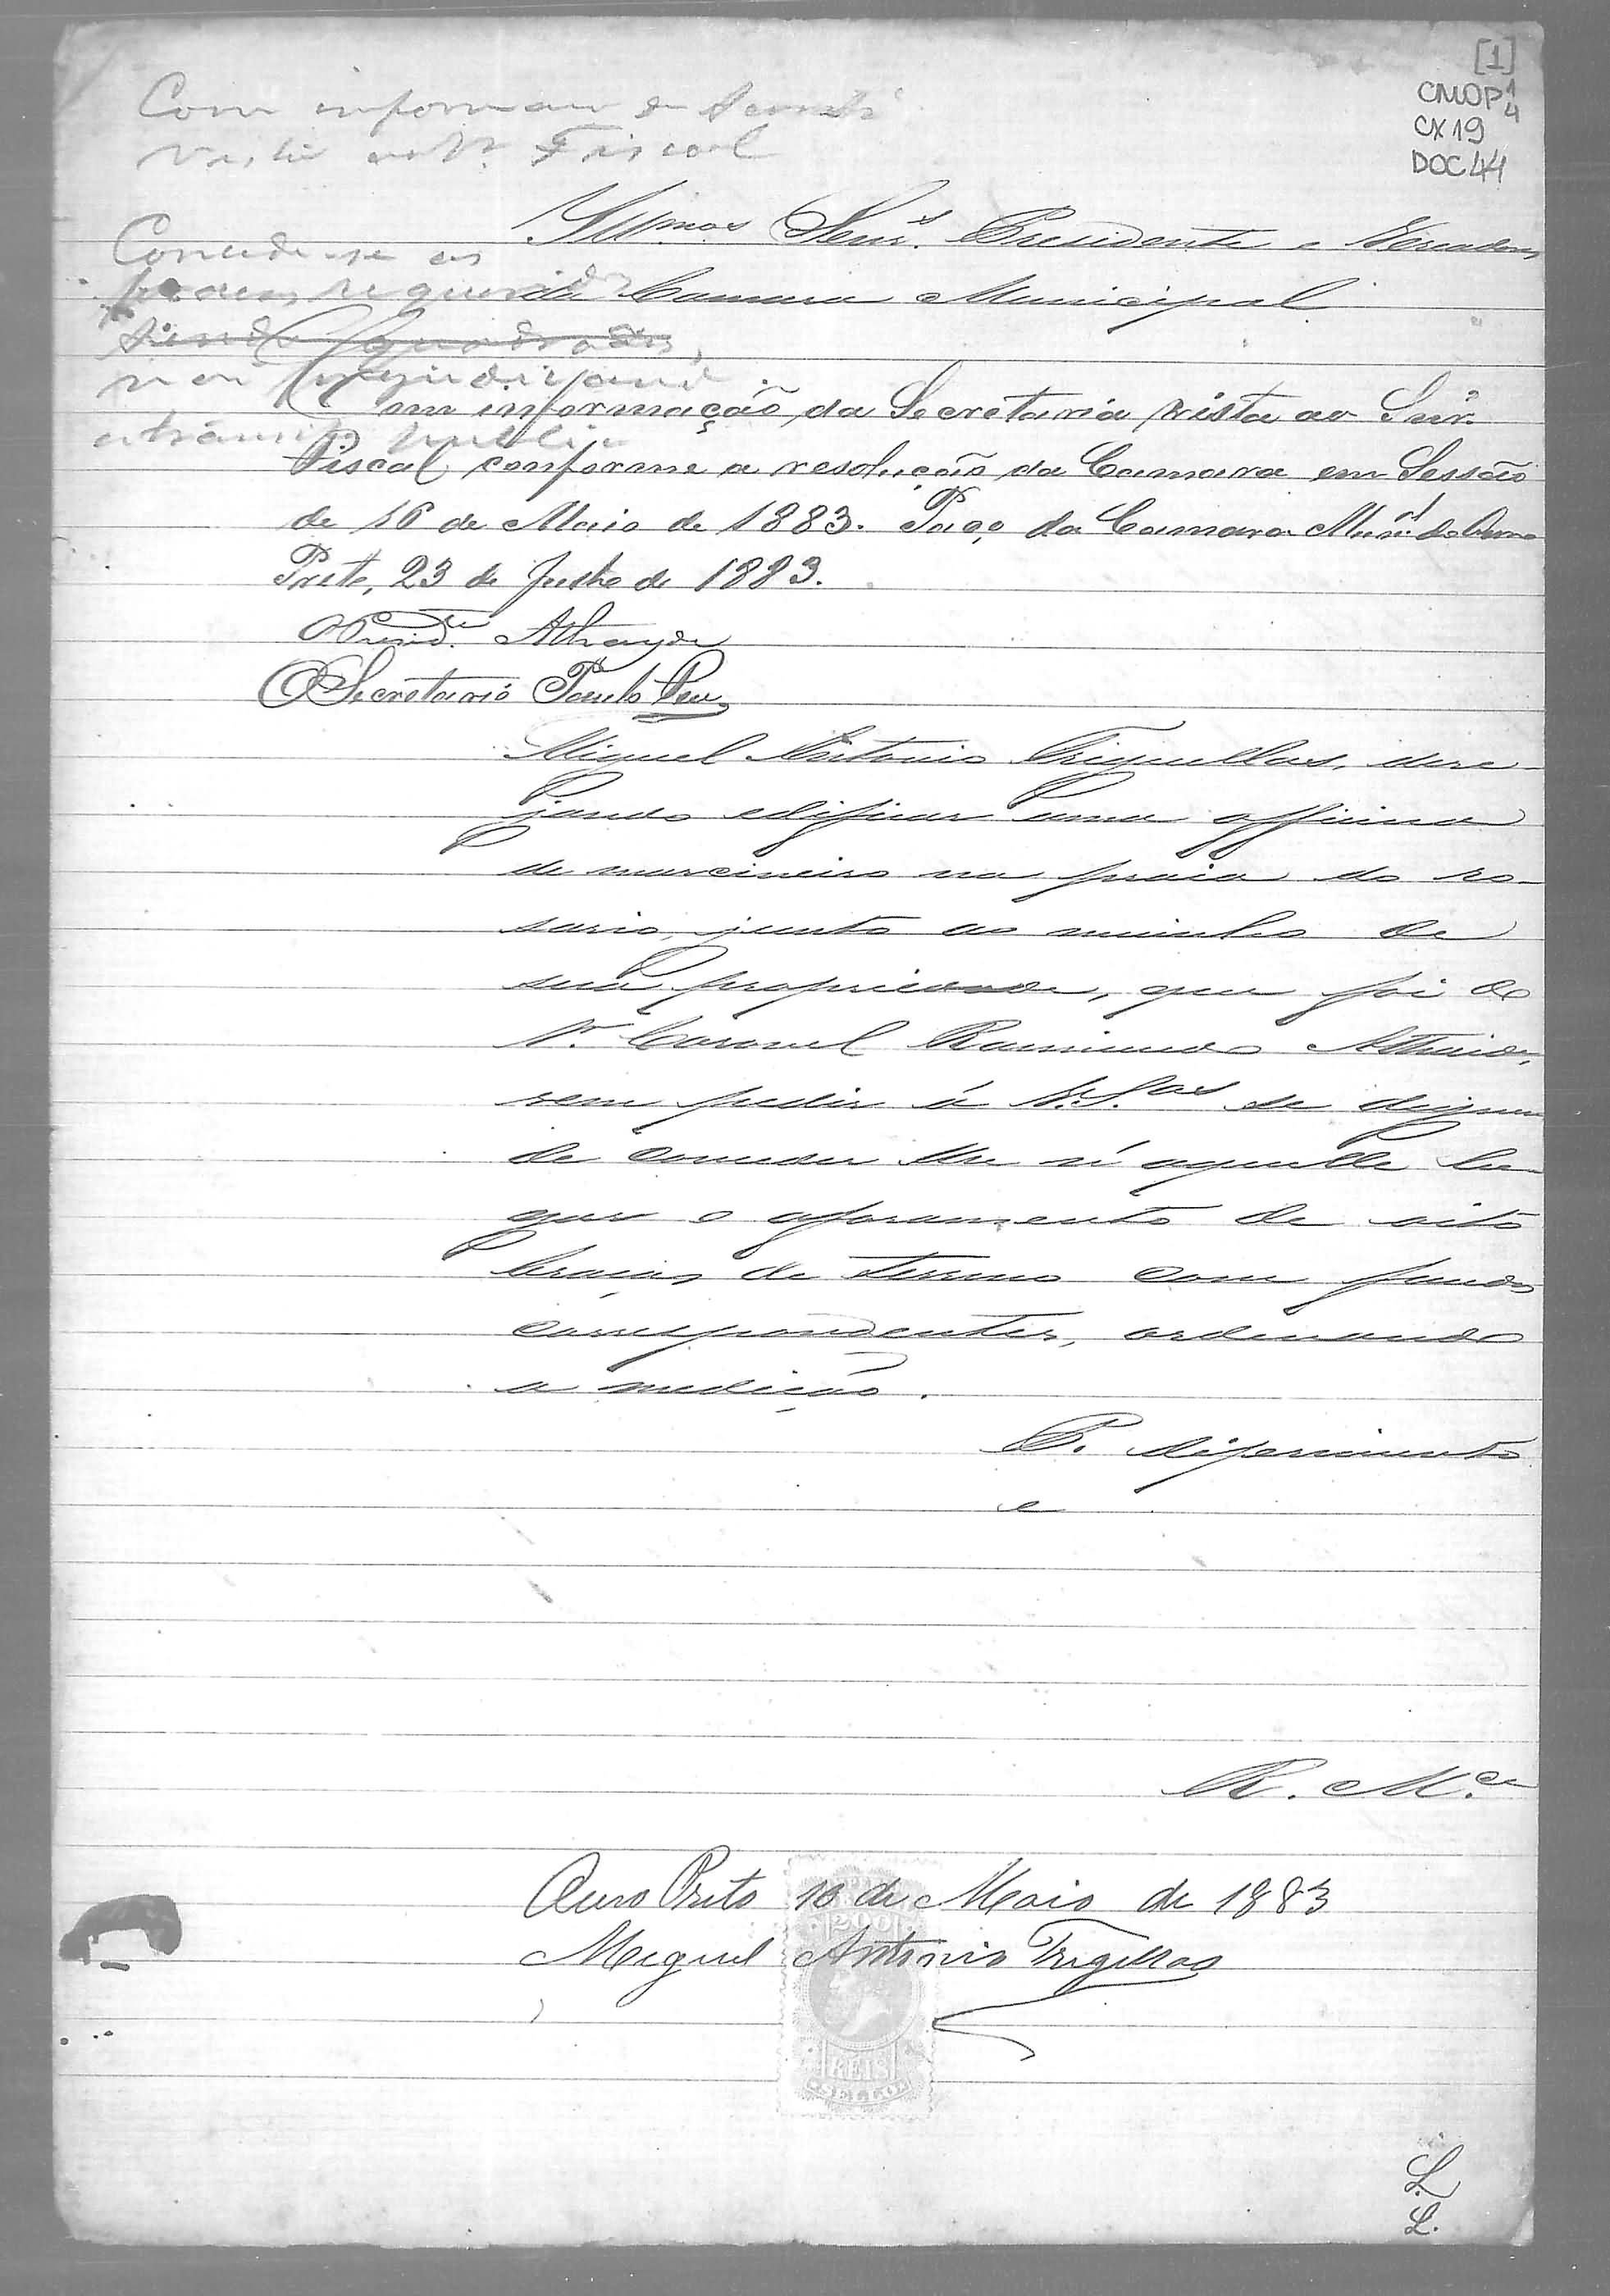 [1]
CMOP 1/4
CX19
DOC 44
Com informaçao da Secret.
vista ao Sr. Fiscal
Concede-se as
braças requeridas
não prejudicando
o transito publico
Illmos. Senrs. Presidente e Vereadores
da Camara Municipal
Com informação da Secretaria vista ao Snr.
Fiscal conforme a resolução da Camara em Sessão
de 16 de Maio de 1883. Paço da Camara Munal. do Ouro
Preto, 23 de Junho de 1883.
O Presid.te Athayde
O Secretario Paulo
Miguel Antonio Triguellas, dese-
jando edificar uma officina
de marcineiro na praia do ro-
sario, junto ao muinho de
sua propriedade, que foi do
Sr. Coronel Raimundo Athaide,
vem pedir á V.S.as se dignem
de conceder lhe n'aquelle lu-
gar o aforamento de oito
braças de terreno com fundos
correspondentes, ordenando
a medição.
P. diferimento
e
R. M.ce
Ouro Preto 16 de Maio de 1883
Miguel Antonio Trigellas
200
REIS
SELLO
L.
L.